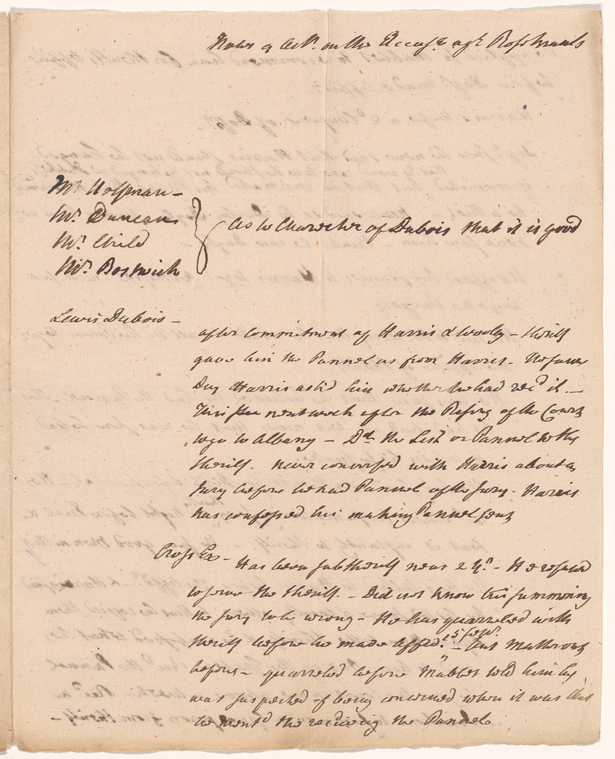 Notes of on the Accusn agt
Mr
Mr Duncan
Mr Child
Mr Bostwick
as to Character of Dubois that it is good
Lewis Dubois -
after Commitment of Harris & Wooly - Sheriff
gave him the Pannel as from Harris - The same
Day Harris ask'd him whether he had recd it -
next week after the Rising of the Court
to go to Albany - Dd the List or Pannel to the
Sheriff. never conversed with Harris about a
Jury before he had Pannel of the Jury. Harris
has confessed his making Pannel
Cross Ex -
Has been sub Sheriff near 2 Ys. - He
to serve the Sheriff. - Did not know this summoning
the Jury to be wrong - He has quarreled with
Sheriff before he made Affidt. but
before - quarreled before told him he
was suspected of being concerned when it was
he the receiving the Pannel